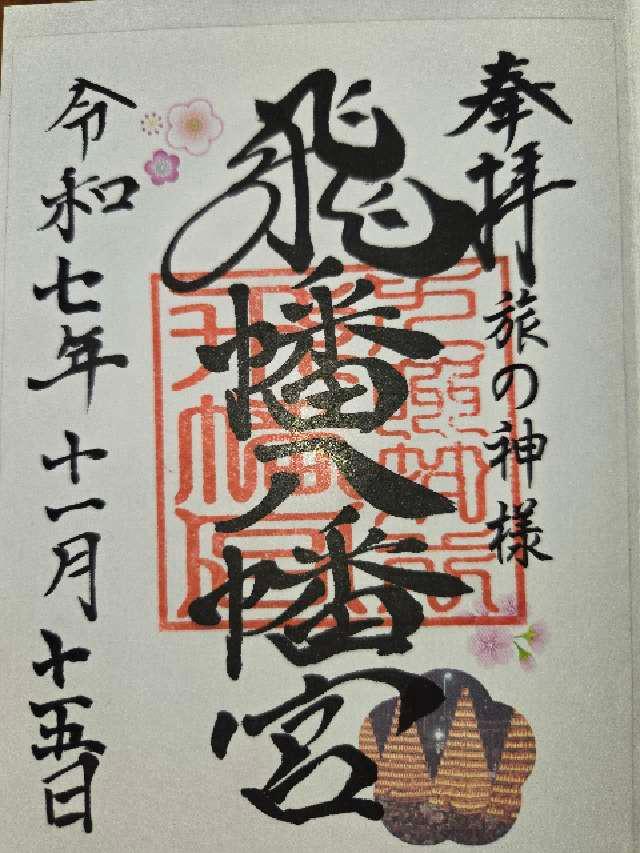 奉拝
旅の神様
飛幡八幡宮
令和七年十一月十五日